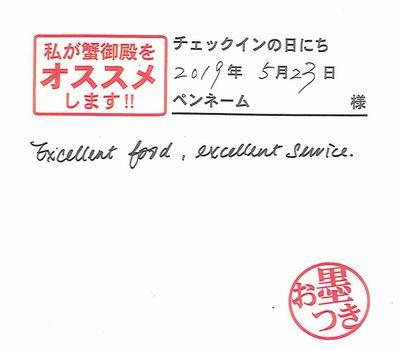 私が蟹御殿を
オススメ
します!!
チェックインの日にち
2019年 5月23日
ペンネーム 様
Excellent food, excellent service.
お墨
つき